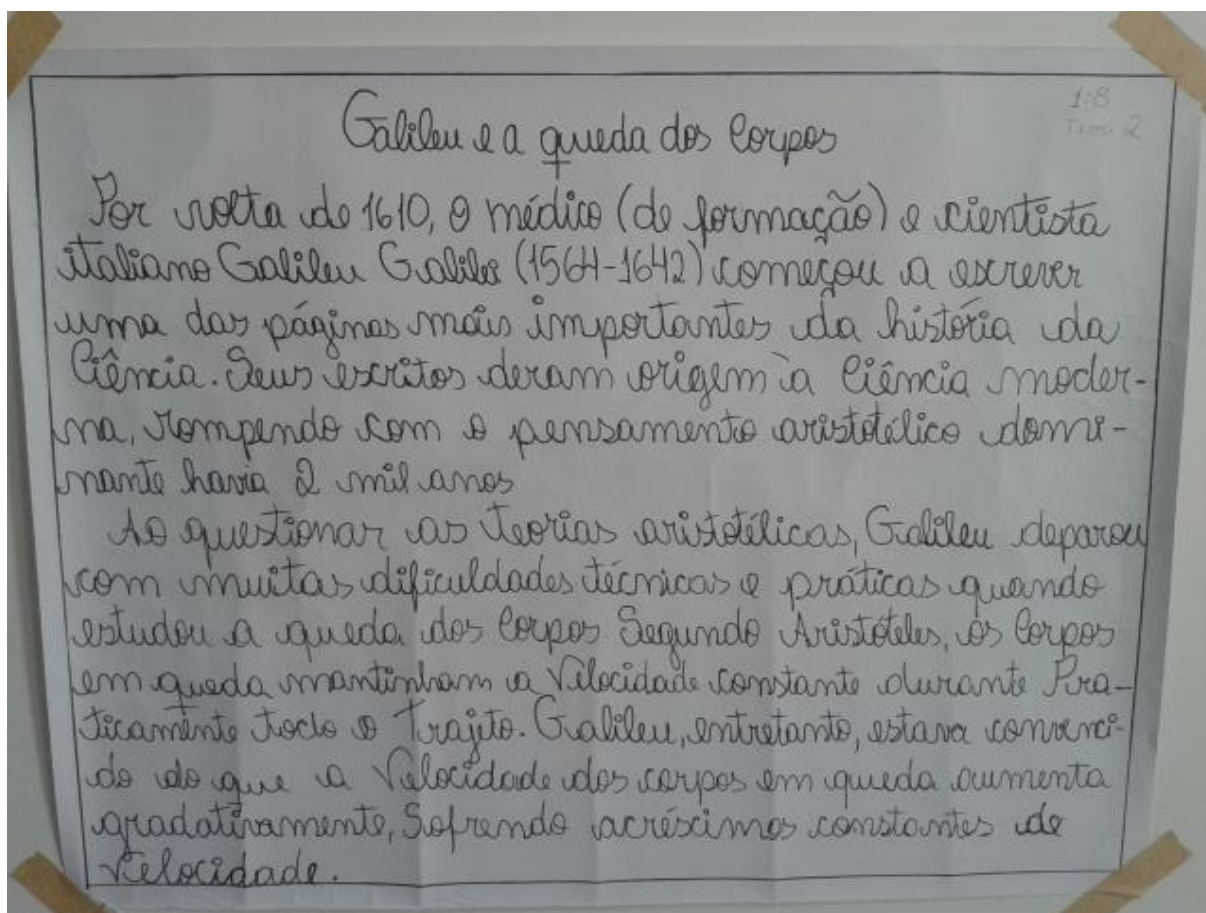 Galileu e a queda dos Corpos
1:8
Por volta de 1610, o médico (de formação) e cientista
italiano Galileu Galilei (1564-1642) começou a escrever
uma das páginas mais importantes da história da
Ciência. Seus escritos deram origem à Ciência moder-
na, rompendo com o pensamento aristotélico domi-
nante havia 2 mil anos
Ao questionar as teorias aristotélicas, Galileu deparou
com muitas dificuldades técnicas e práticas quando
estudou a queda dos Corpos Segundo Aristóteles, os Corpos
em queda mantinham a Velocidade constante durante Pra-
ticamente todo o Trajeto. Galileu, entretanto, estava convenci-
do do que a Velocidade dos corpos em queda aumenta
gradativamente, Sofrendo acréscimos constantes de
Velocidade.